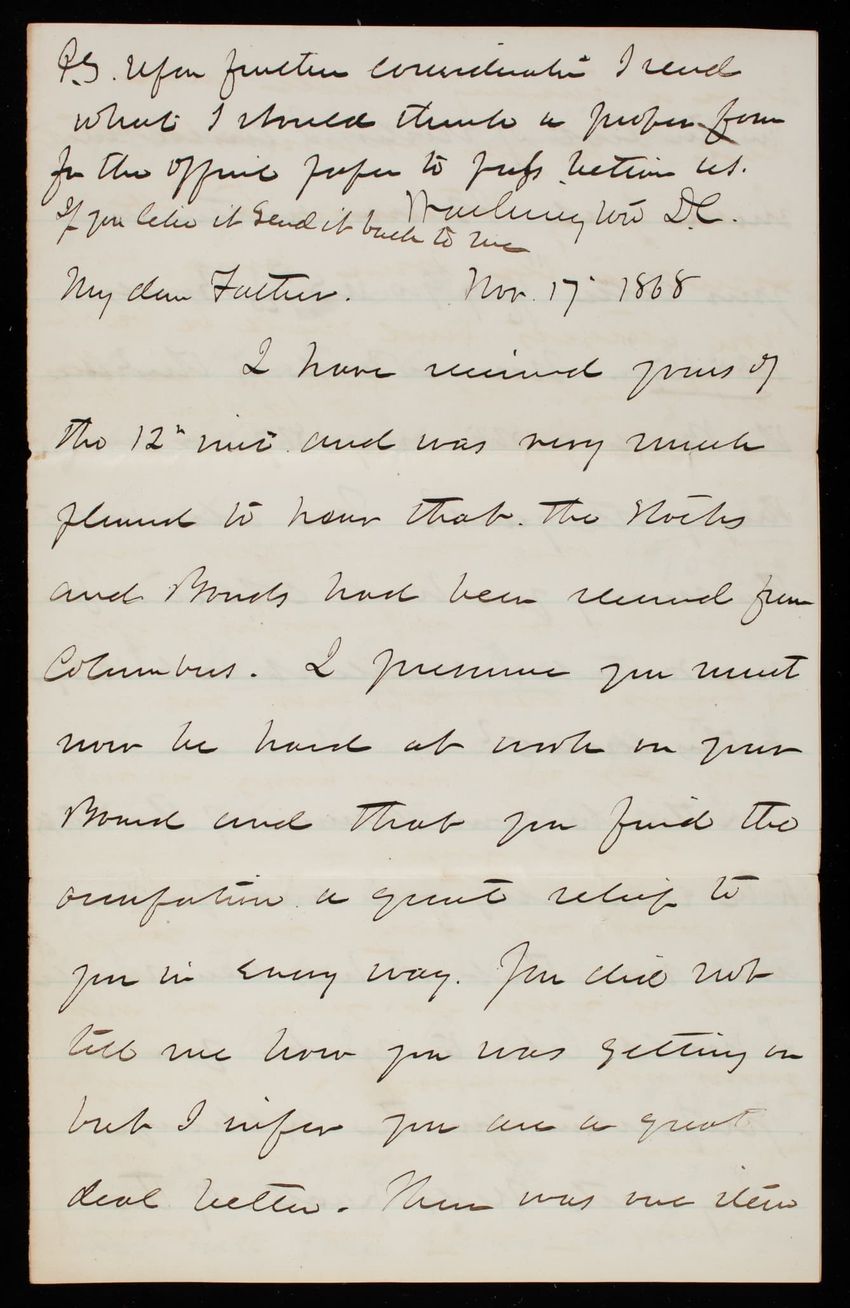 P.S. Upon further consideration I send
what I should think a proper form
for the official paper to pass between us.
If you like it send it back to me
Washington D.C.
My dear Father. Nov. 17 1868
I have received yours of
the 12th inst. and was very much
pleased to hear that the Stocks
and Bonds had been received from
Columbus. I presume you must
now be hard at work on your
Board and that you find the
occupation a great relief to
you in every way. You did not
tell me how you was getting on
but I infer you are a great
deal better. There was one item